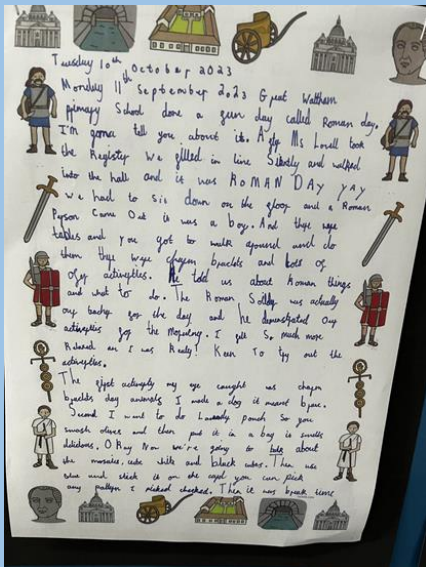 Tuesday 10th October 2023
Monday 11th September 2023 Great Waltham
Primary School done a fun day called Roman day.
I'm gonna tell you about it. After Ms Lovell took
the Register we filled in line Silently and walked
into the hall and it was RoMAN DAY YAY
we had to sit down on the floor and a Roman
Person Came Out it was a boy. And there were
tables and you got to walk around and do
them there were charm braclets and lots of
activeties. He told us about Roman things
and what to do. The Roman was actually
our for the day and he demonstrated our
activeties for the I felt So much more
Relaxed an I was Really! Keen To try out the
activeties.
The first my eye caught was charm
braclets clay animals I made a dog it meant brave.
Second I want to do pouch So you
smash and then put it in a bag is smells
delicious. Okay Now we're going to talk about
the mosaics, cube white and black cubes. Then use
blue and stick it on the card you can pick
any I picked checked. Then it was break time